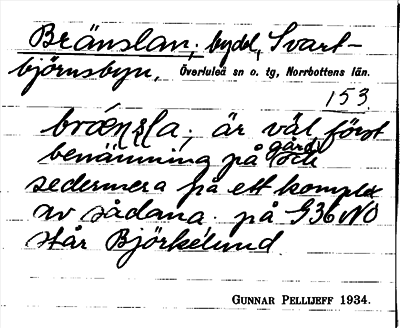 Bränslan; bydel, Svart-
björnsbyn, Överluleå sn o. tg, Norrbottens län.
153.
är väl först
gård
benämning på och
sedermera på ett komplex
av sådana. på S36 NO
står Björkelund.
GUNNAR PELLIJEFF 1934.